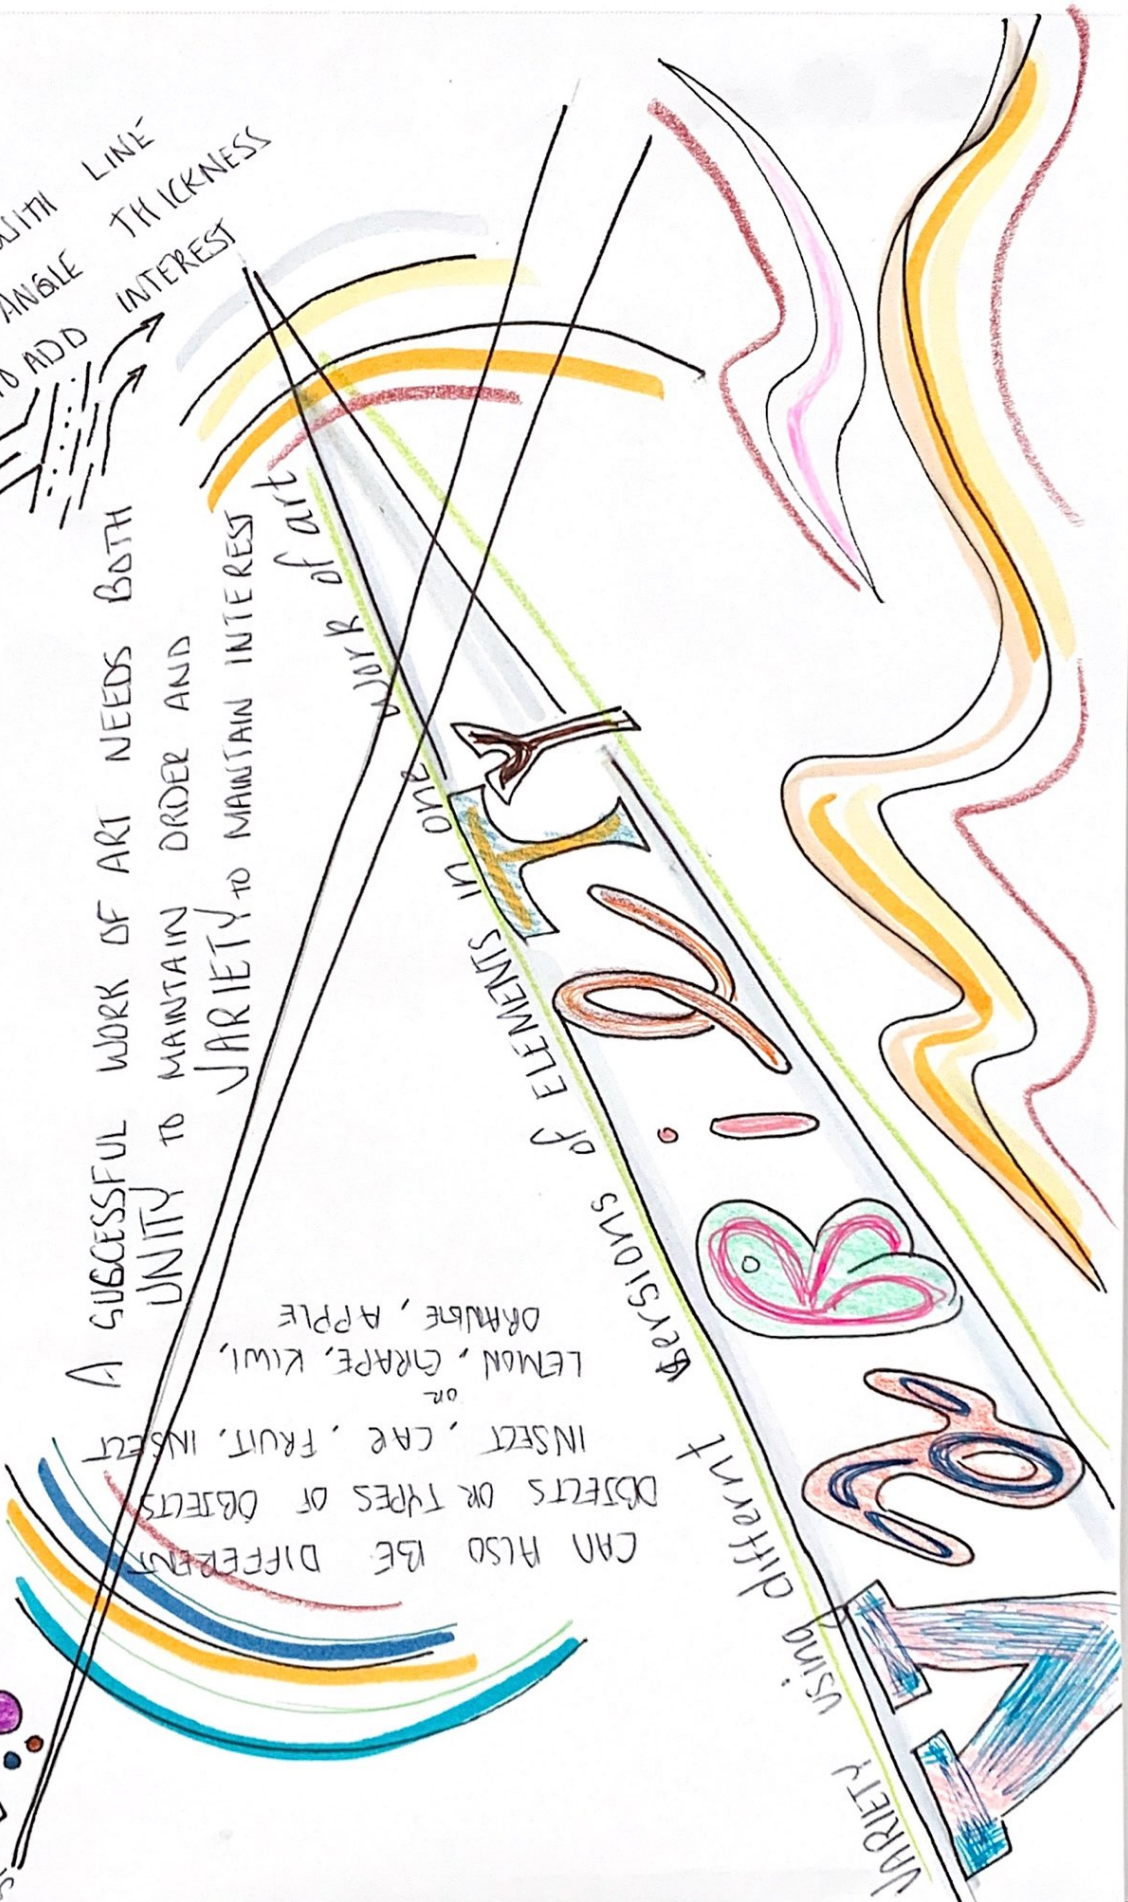 WITH LINE
ANGLE THICKNESS
TO ADD INTEREST
A SUCCESSFUL WORK OF ART NEEDS BOTH
UNITY TO MAINTAIN ORDER AND
VARIETY TO MAINTAIN INTEREST
VARIETY using different versions of ELEMENTS in one work of art
VaRieTY
CAN ALSO BE DIFFERENT
OBJECTS OR TYPES OF OBJECTS
INSECT, CAR, FRUIT, INSECT
OR
LEMON, GRAPE, KIWI,
ORANGE, APPLE